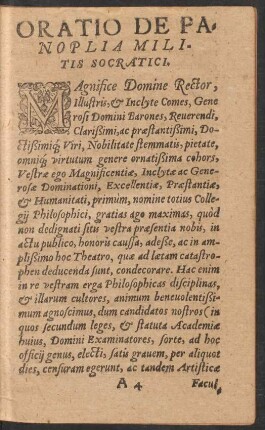 ORATIO DE PA-
NOPLIA MILI-
TIS SOCRATICI.
MAgnifice Domine Rector,
Illustris, & Inclyte Comes, Gene
rosi Domini Barones, Reverendi,
Clarissimi, ac præstantissimi, Do-
ctissimiq́; Viri, Nobilitate stemmatis, pietate,
omniq́; virtutum genere ornatissima cohors,
Vestræ ego Magnificentiæ, Inclytæ ac Gene-
rosæ Dominationi, Excellentiæ, Præstantiæ,
& Humanitati, primum, nomine totius Colle-
gij Philosophici, gratias ago maximas, quòd
non dedignati sitis vestra præsentia nobis, in
actu publico, honoris caussa, adesse, ac in am-
plissimo hoc Theatro, quæ ad lætam catastro-
phen deducenda sunt, condecorare. Hac enim
in re vestram erga Philosophicas disciplinas,
& illarum cultores, animum benevolentissi-
mum agnoscimus, dum candidatos nostros (in
quos secundum leges, & statuta Academiæ
huius, Domini Examinatores, sorte, ad hoc
officij genus, electi, satis graвem, per aliquot
dies, censuram egerunt, ac tandem Artisticæ
A 4 Facul,